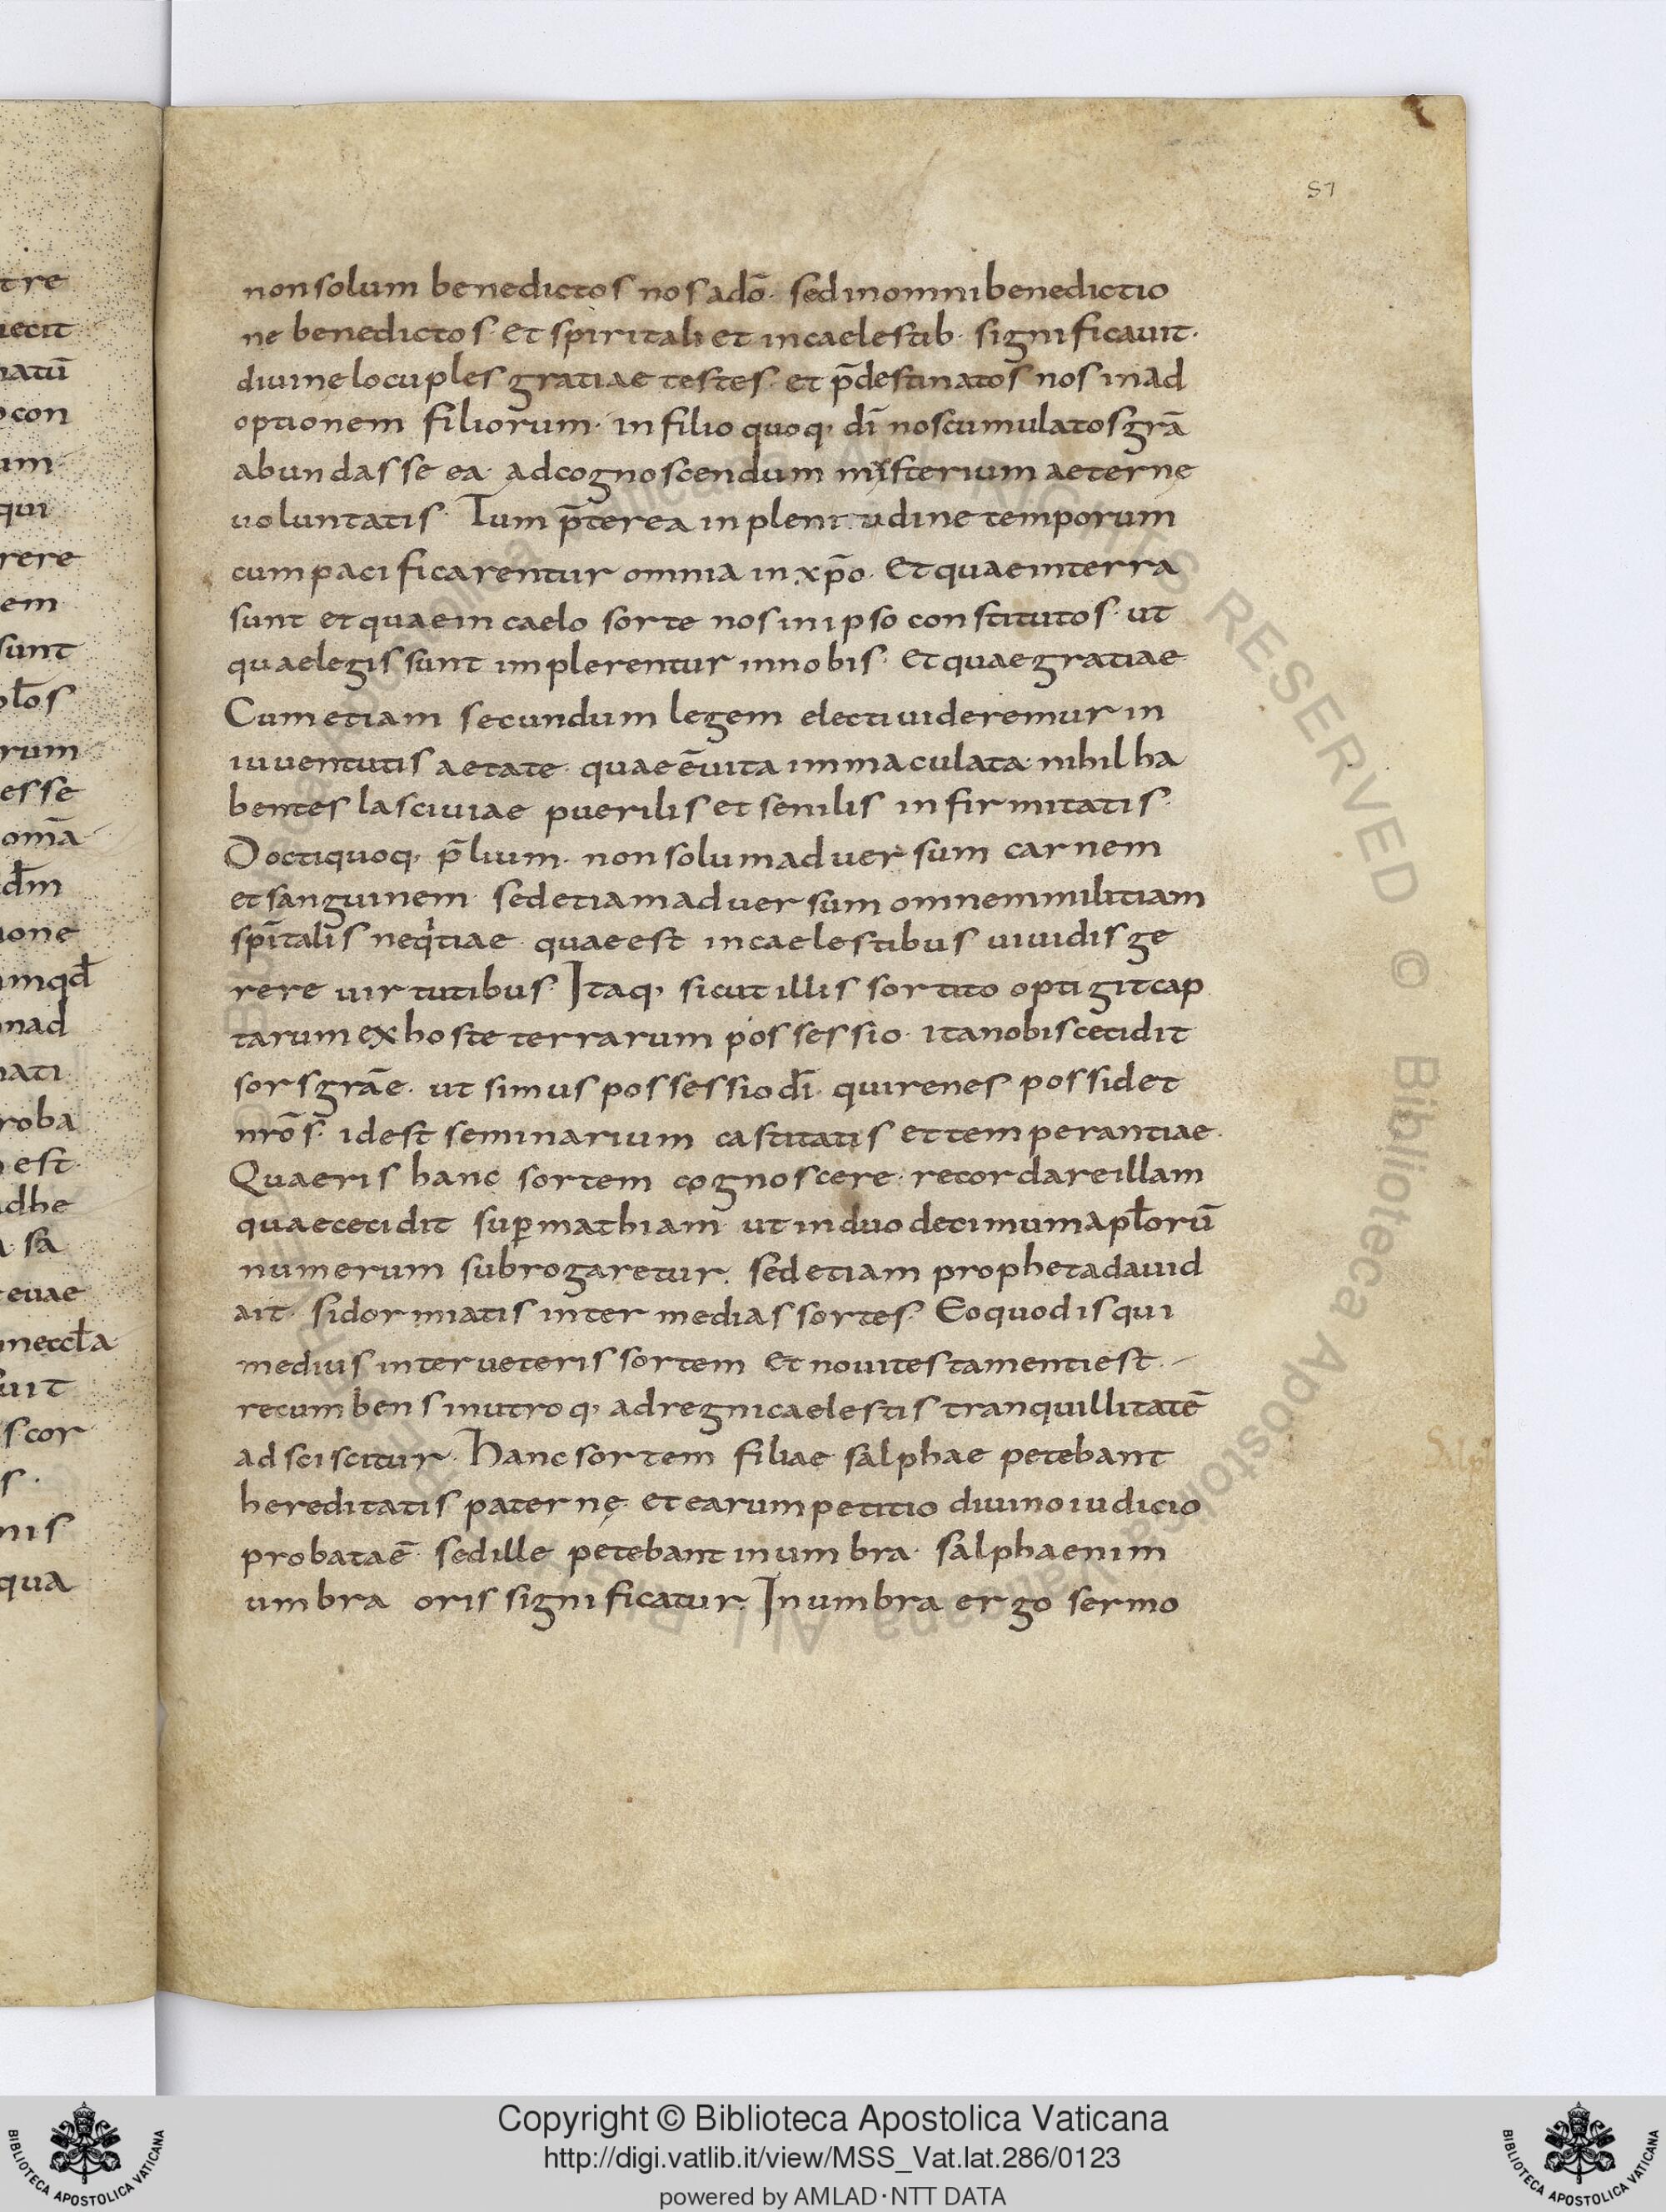 57
non solum benedictos nos a dō· sed in omni benedictio
ne benedictos· et spiritali et in caelestib· significauit·
diuine locuples gratiae testes· et p̄destinatos nos in ad
optionem filiorum· in filio quoq, dī nos cumulatos grā
abundasse ea· ad cognoscendum misterium aeternę
uoluntatis· Tum p̄terea in plenitudine temporum
cum pacificarentur omnia in xp̄o· Et quae in terra
sunt et quae in caelo sorte nos in ipso constitutos· ut
quae legis sunt implerentur in nobis· Et quae gratiae
Cum etiam secundum legem electi uideremur in
iuuentutis aetate· quae ē uita immaculata· nihil ha
bentes lasciuiae puerilis et senilis infirmitatis·
Docti quoq, p̄lium· non solum aduersum carnem
et sanguinem· sed etiam aduersum omnem militiam
spīitalis neqitiae· quae est in caelestibus uiuidis ge
rere uirtutibus· Itaq, sicut illis sortito optigit cap
tarum ex hoste terrarum possessio· ita nobis cecidit
sors grāe· ut simus possessio dī· qui renes possidet
nrōs· id est seminarium castitatis et temperantiae·
Quaeris hanc sortem cognoscere· recordare illam
quae cecidit sup mathiam· ut in duodecimum apl̄orū
numerum subrogaretur· sed etiam propheta dauid
ait· si dormiatis inter medias sortes· Eo quod is qui
medius inter ueteris sortem et noui testamenti est·
recumbens in utroq, ad regni caelestis tranquillitatē
adsciscitur· Hanc sortem filiae salphae petebant
hereditatis paternę· et earum petitio diuino iudicio
probata ē· sed ille petebant in umbra· salpha enim
umbra oris significatur· In umbra ergo sermo
Copyright © Biblioteca Apostolica Vaticana
http://digi.vatlib.it/view/MSS_Vat.lat.286/0123
powered by AMLAD·NTT DATA
BIBLIOTECA APOSTOLICA VATICANA
BIBLIOTECA APOSTOLICA VATICANA